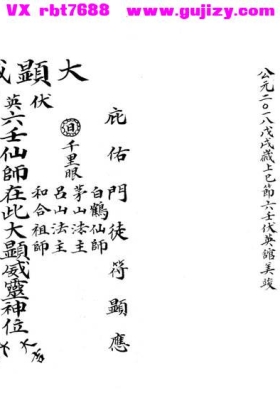 VX rbt7688  www.gujizy.com
公元二〇一八戊戌歲上巳節六壬伏英館美竣
庇佑門徒符顯應
大顯威
白鶴仙師
千里眼 茅山法主
呂山法主
和合祖師
伏英六壬仙師在此大顯威靈神位